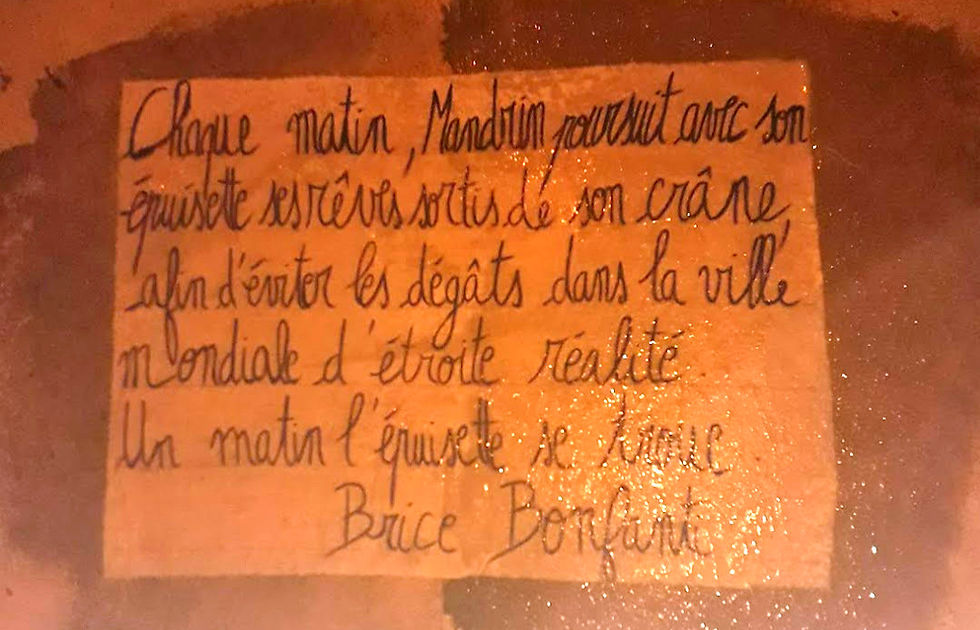 Chaque matin, Mandrin poursuit avec son
épuisette ses rêves sortis de son crâne,
afin d'éviter les dégâts dans la ville
mondiale d'étroite réalité.
Un matin l'épuisette se troue.
Brice Bonfanti